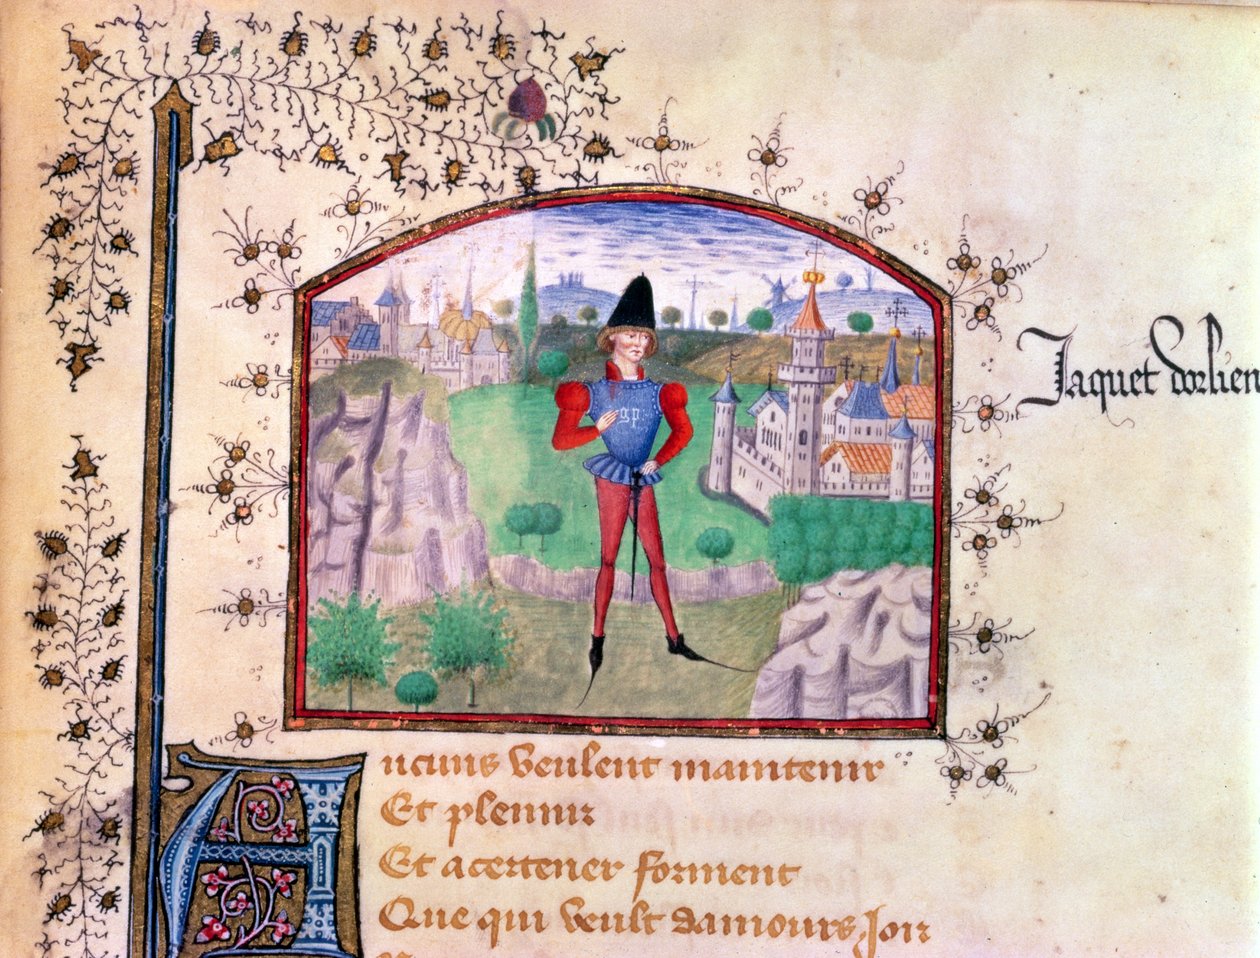 gp
Jaquet dorlien
Aucuns veulent maintenir
Et plennir
Et acertener forment
Que qui veult damours Joir